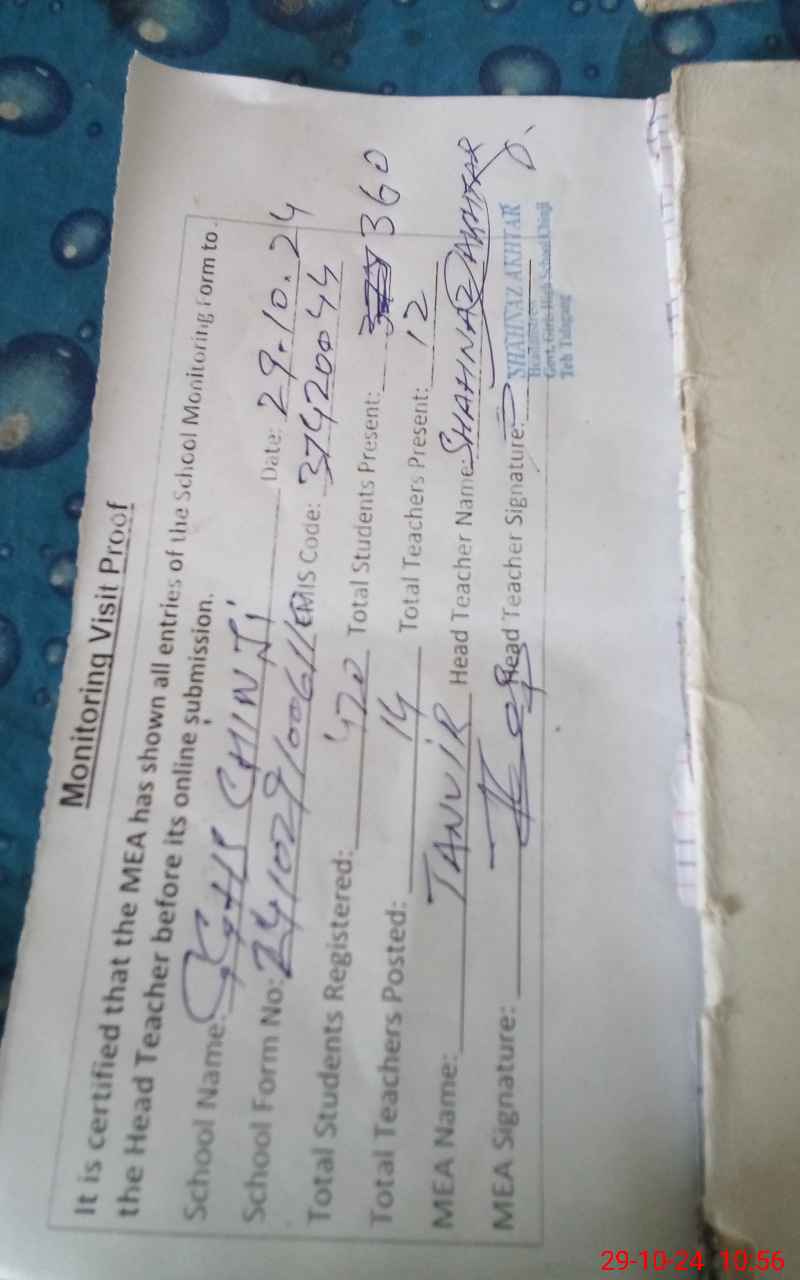 Monitoring Visit Proof
It is certified that the MEA has shown all entries of the School Monitoring Form to
the Head Teacher before its online submission.
School Name: GGHS CHINJI Date: 29.10.24
School Form No: EMIS Code: 37420044
Total Students Registered: 470 Total Students Present: 360
Total Teachers Posted: 14 Total Teachers Present: 12
MEA Name: TANVIR Head Teacher Name: SHAHNAZ AKHTAR
MEA Signature: Head Teacher Signature:
SHAHNAZ AKHTAR
Headmistress
Govt. Girls High School Chinji
Teh Talagang
29-10-24 10:56